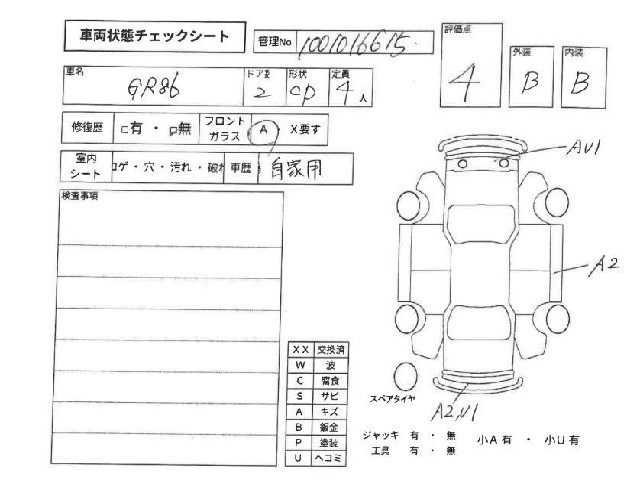 車両状態チェックシート
管理No 1001016615
評価点 4
外装 B
内装 B
車名 GR86
ドア数 2
形状 CP
定員 4人
修復歴 □有・□無
フロントガラス A X要す
室内シート コゲ・穴・汚れ・破れ
車歴 自家用
検査事項
AU1
A2
A2,U1
XX 交換済
W 波
C 腐食
S サビ
A キズ
B 鈑金
P 塗装
U ヘコミ
スペアタイヤ
ジャッキ 有・無
工具 有・無
小A有・小U有